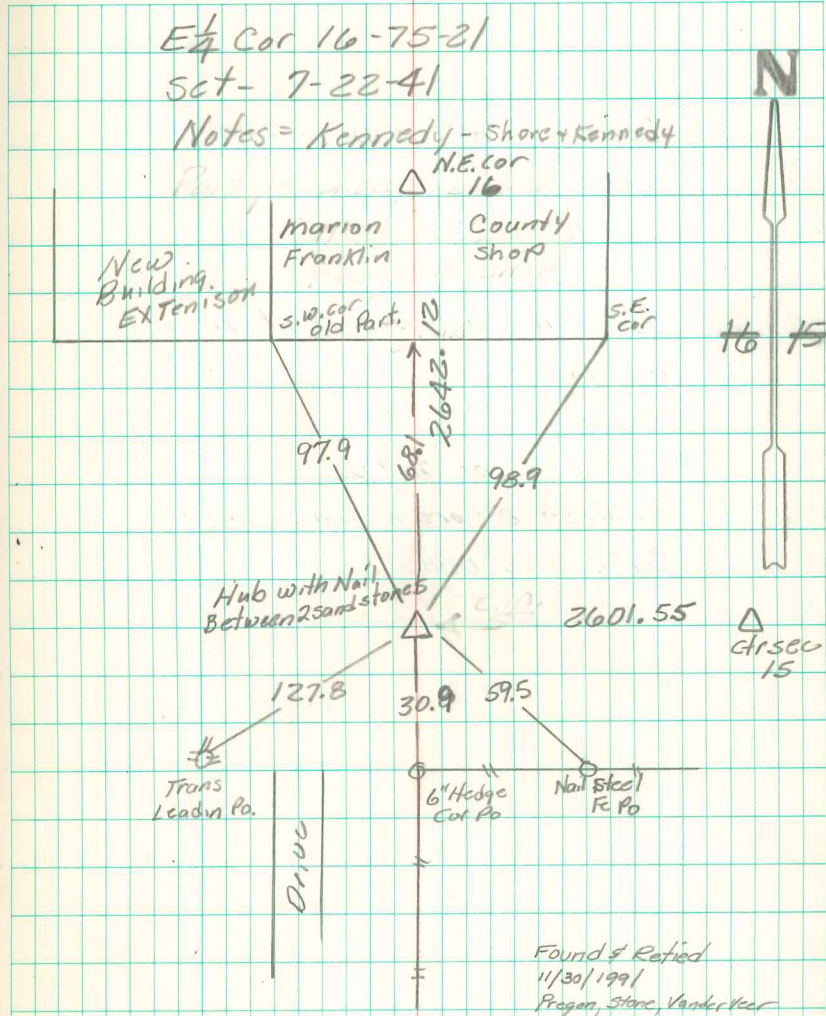 E 1/4 Cor 16-75-21
Set- 7-22-41
Notes = Kennedy - Shore & Kennedy
N
N.E. Cor
16
New
Building.
EXTenison
Marion
Franklin
County
Shop
S.W. cor
old Part.
S.E.
cor
16 15
68.1
2642.12
97.9
98.9
Hub with Nail
Between 2 sandstones
2601.55
Ctrsec
15
127.8
30.9
59.5
Trans
Leadin Po.
6" Hedge
Cor Po
Nail Steel
Fc Po
Drive
Found & Retied
11/30/1991
Pregon, Stone, VanderVeer